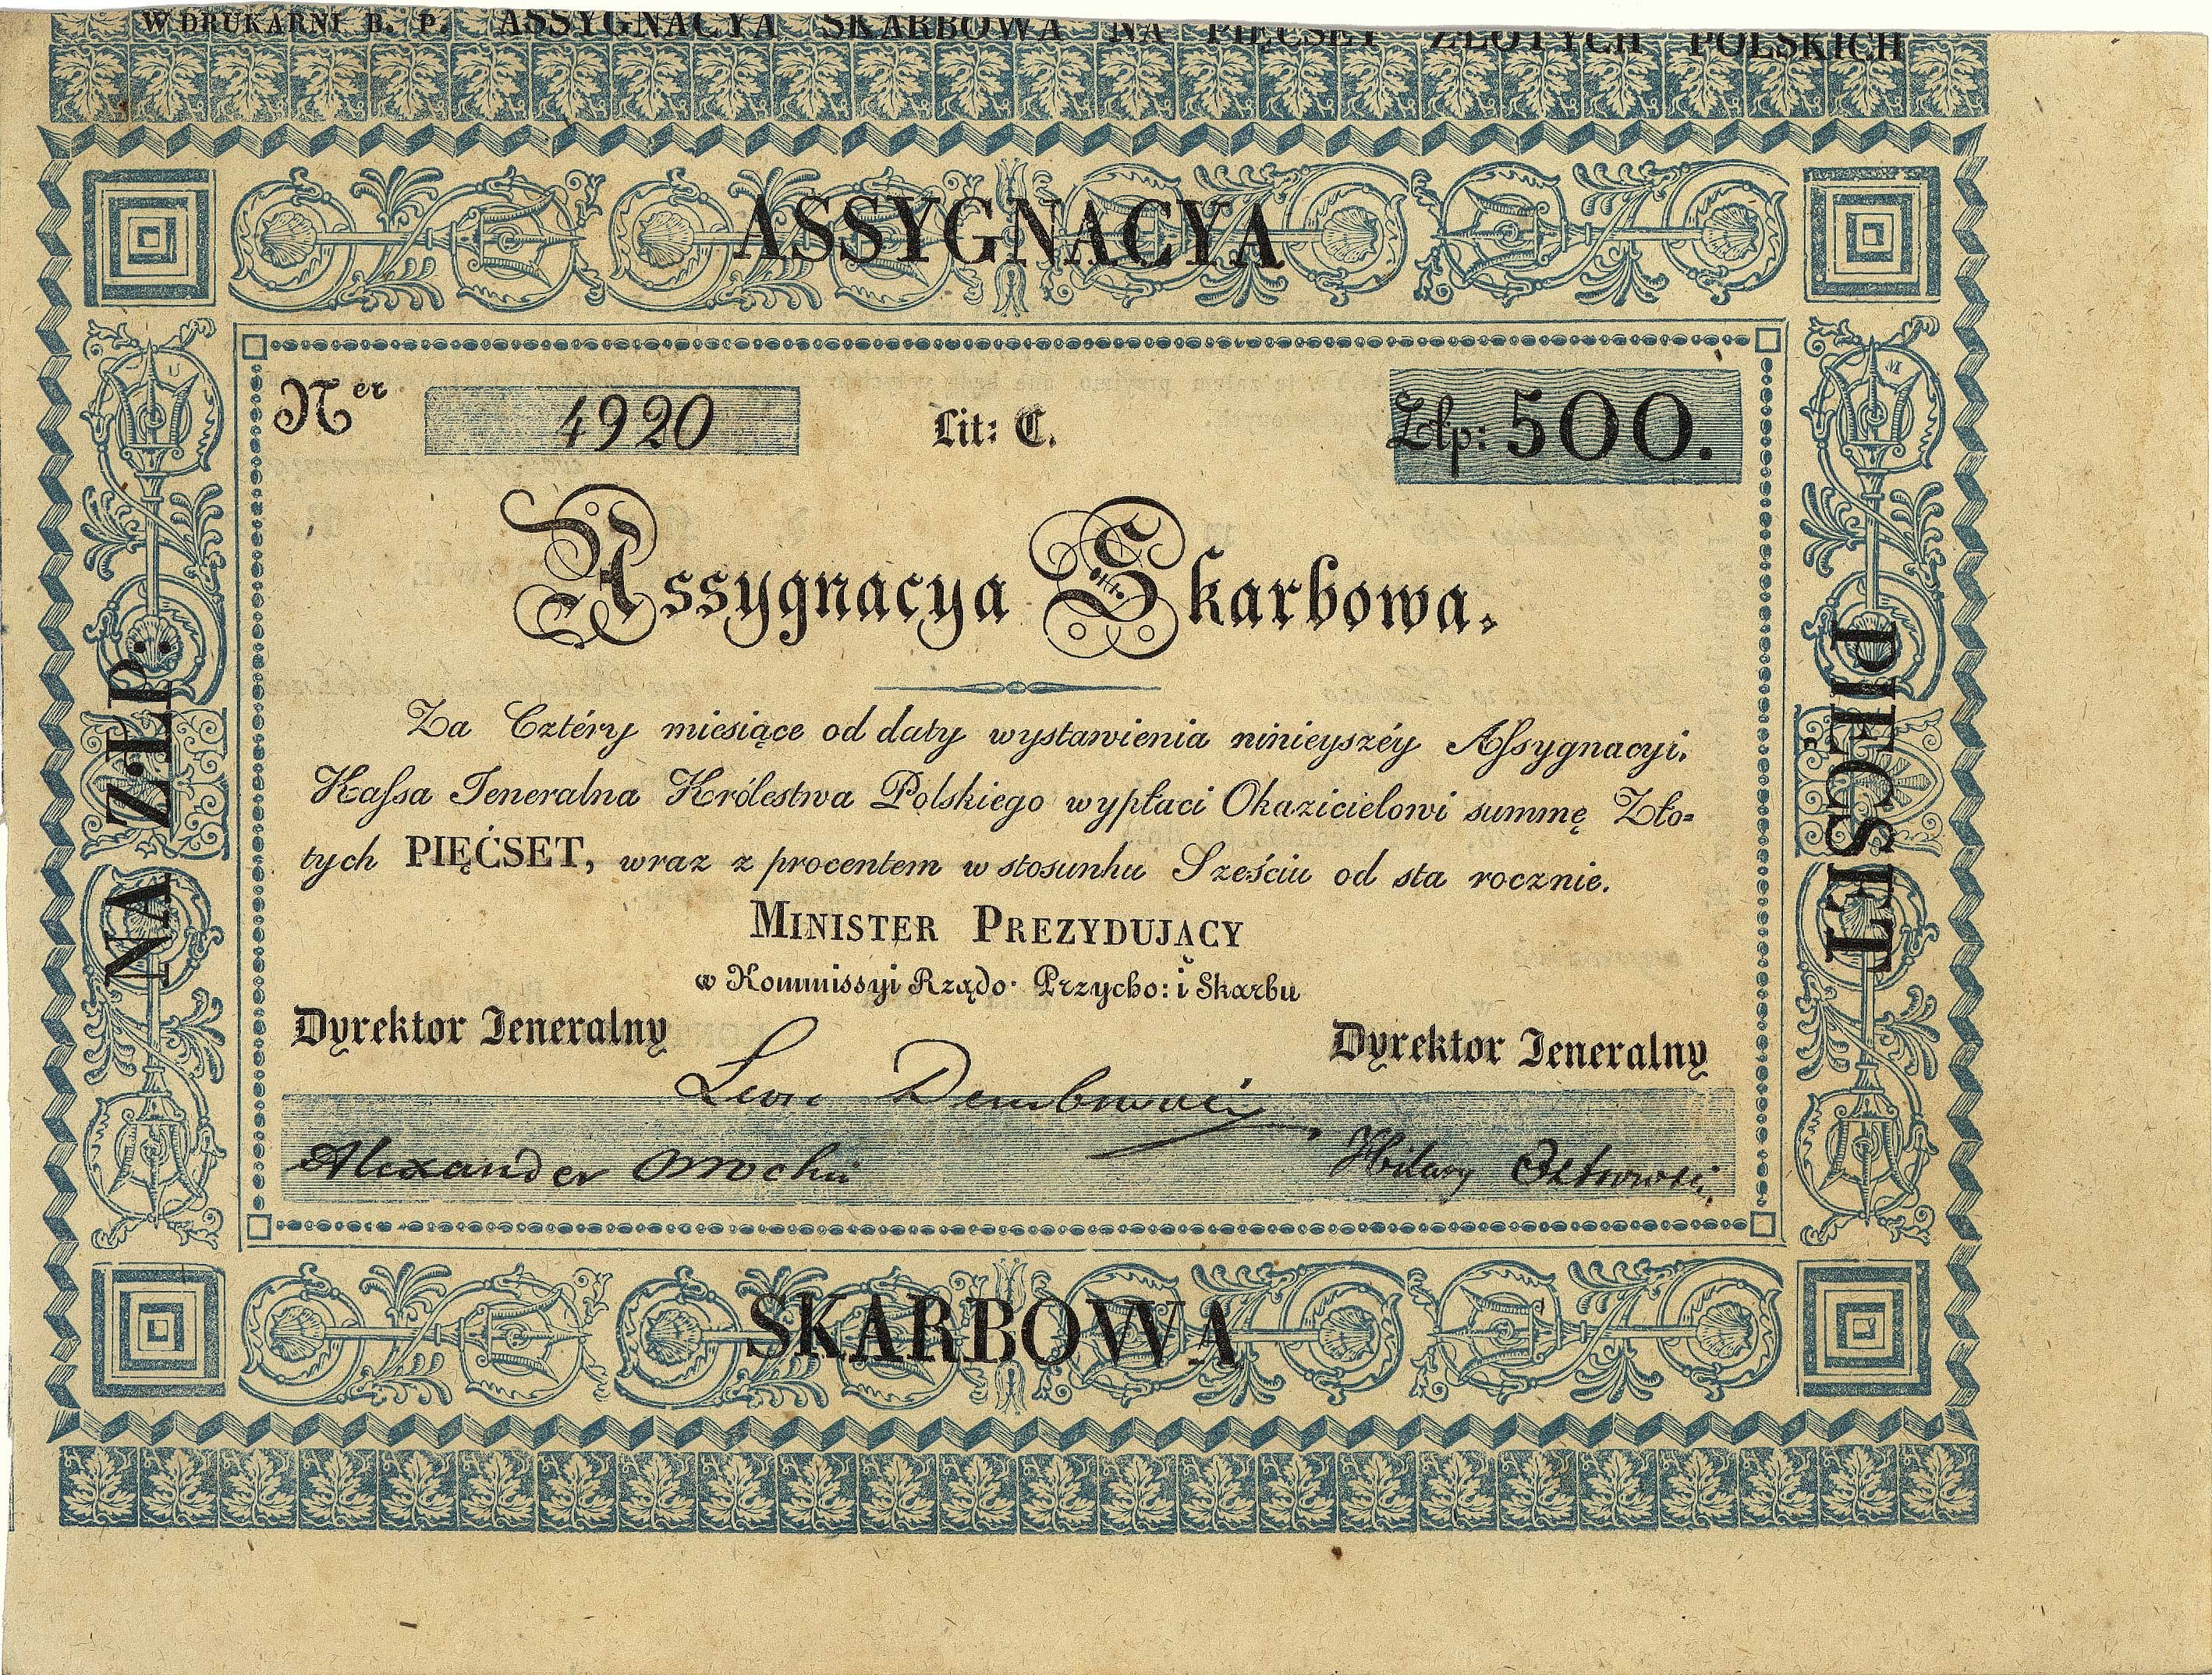 W DRUKARNI B. P. ASSYGNACYA SKARBOWA NA PIĘĆSET ZŁOTYCH POLSKICH
ASSYGNACYA
Ner 4920 Lit: C. Złp: 500.
Assygnacya Skarbowa.
NA ZŁP:
PIĘĆSET
Za Cztéry miesiące od daty wystawienia ninieyszéy Assygnacyi,
Kassa Jeneralna Królestwa Polskiego wypłaci Okazicielowi summę Zło=
tych PIĘĆSET, wraz z procentem w stosunku Sześciu od sta rocznie.
MINISTER PREZYDUJĄCY
w Kommissyi Rządo· Przycho: i Skarbu
Dyrektor Jeneralny Dyrektor Jeneralny
Leon Dembowski
Alexander Hilary Ostrowski
SKARBOWA